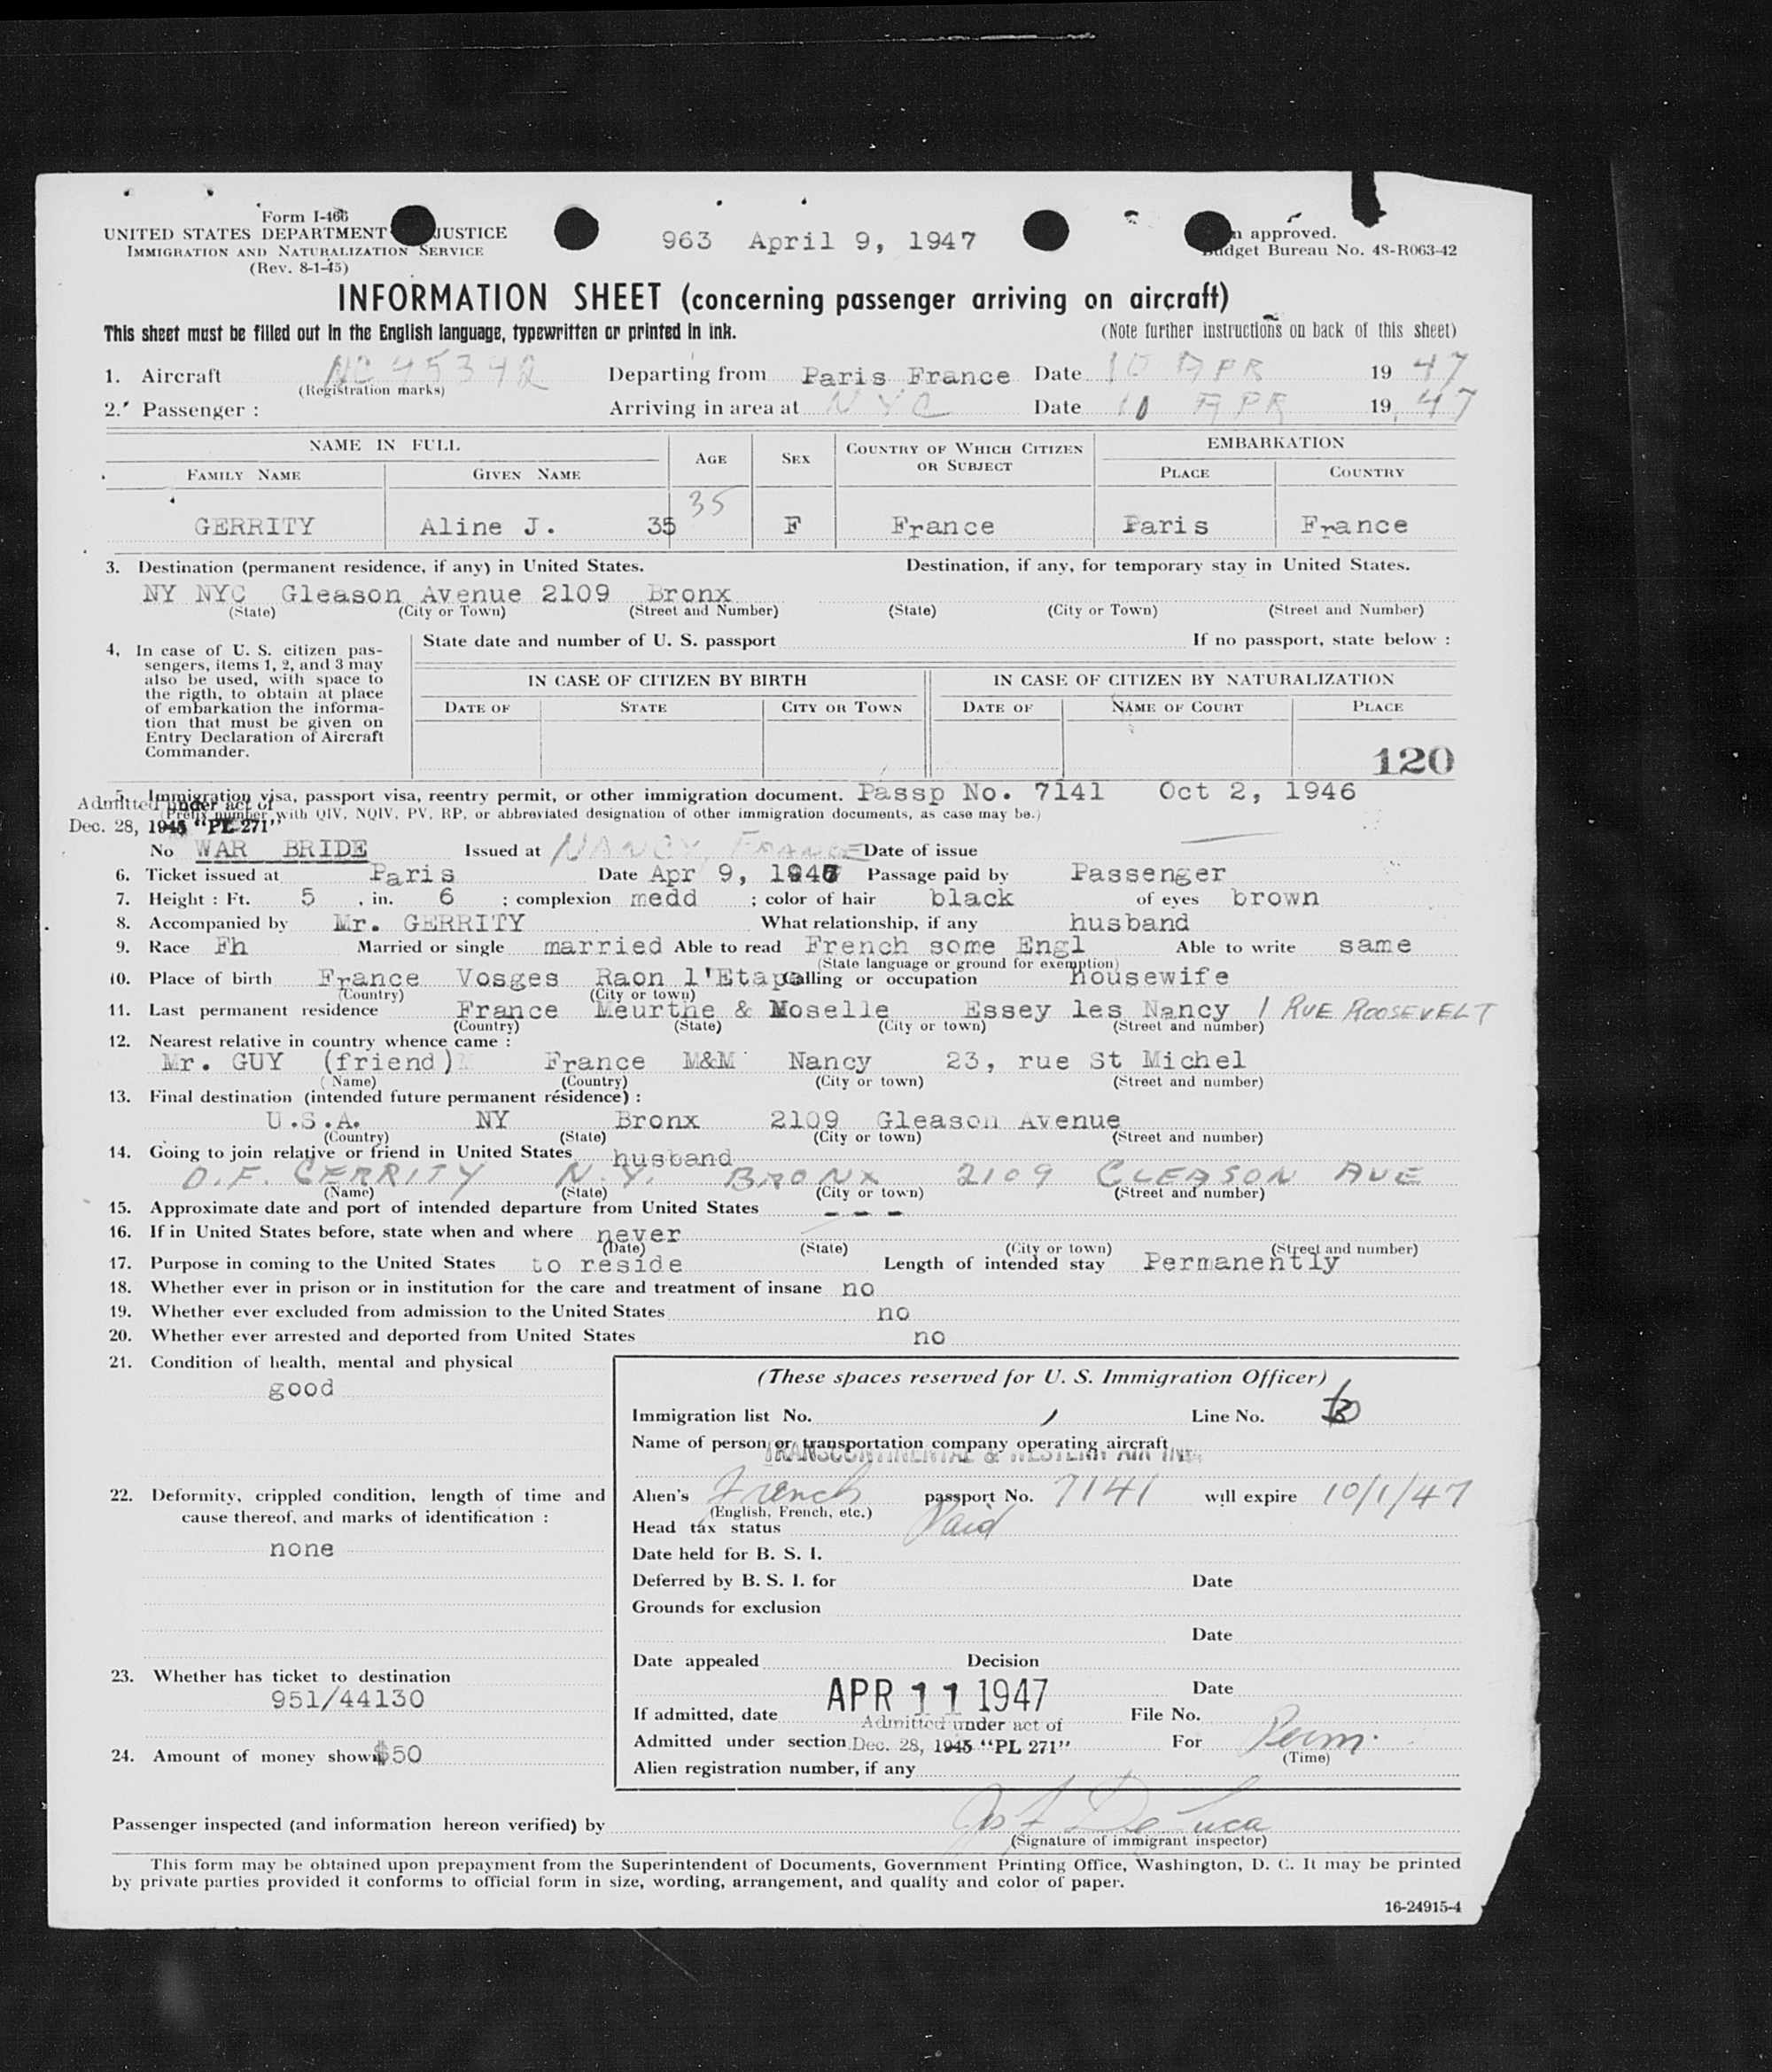 Form I-466
UNITED STATES DEPARTMENT JUSTICE
IMMIGRATION AND NATURALIZATION SERVICE
(Rev. 8-1-45)
963 April 9, 1947
approved.
Budget Bureau No. 48-R063-42
INFORMATION SHEET (concerning passenger arriving on aircraft)
This sheet must be filled out in the English language, typewritten or printed in ink. (Note further instructions on back of this sheet)
1. Aircraft NC 45342 Departing from Paris France Date 10 APR 19 47
(Registration marks)
2. Passenger : Arriving in area at NYC Date 10 APR 19 47
NAME IN FULL AGE SEX COUNTRY OF WHICH CITIZEN OR SUBJECT EMBARKATION
FAMILY NAME GIVEN NAME PLACE COUNTRY
35
GERRITY Aline J. 35 F France Paris France
3. Destination (permanent residence, if any) in United States. Destination, if any, for temporary stay in United States.
NY NYC Gleason Avenue 2109 Bronx
(State) (City or Town) (Street and Number) (State) (City or Town) (Street and Number)
4. In case of U. S. citizen pas-
sengers, items 1, 2, and 3 may
also be used, with space to
the rigth, to obtain at place
of embarkation the informa-
tion that must be given on
Entry Declaration of Aircraft
Commander.
State date and number of U. S. passport If no passport, state below :
IN CASE OF CITIZEN BY BIRTH IN CASE OF CITIZEN BY NATURALIZATION
DATE OF STATE CITY OR TOWN DATE OF NAME OF COURT PLACE
120
5. Immigration visa, passport visa, reentry permit, or other immigration document. Passp No. 7141 Oct 2, 1946
Admitted under act of
(Prefix number with QIV, NQIV, PV, RP, or abbreviated designation of other immigration documents, as case may be.)
Dec. 28, 1945 "PL 271"
No WAR BRIDE Issued at NANCY, FRANCE Date of issue
6. Ticket issued at Paris Date Apr 9, 1947 Passage paid by Passenger
7. Height : Ft. 5 , in. 6 ; complexion medd ; color of hair black of eyes brown
8. Accompanied by Mr. GERRITY What relationship, if any husband
9. Race Fh Married or single married Able to read French some Engl Able to write same
(State language or ground for exemption)
10. Place of birth France Vosges Raon l'Etape Calling or occupation housewife
(Country) (City or town)
11. Last permanent residence France Meurthe & Moselle Essey les Nancy 1 RUE ROOSEVELT
(Country) (State) (City or town) (Street and number)
12. Nearest relative in country whence came :
Mr. GUY (friend) France M&M Nancy 23, rue St Michel
(Name) (Country) (City or town) (Street and number)
13. Final destination (intended future permanent résidence) :
U.S.A. NY Bronx 2109 Gleason Avenue
(Country) (State) (City or town) (Street and number)
14. Going to join relative or friend in United States husband
D.F. GERRITY N.Y. BRONX 2109 GLEASON AVE
(Name) (State) (City or town) (Street and number)
15. Approximate date and port of intended departure from United States - - -
16. If in United States before, state when and where never
(Date) (State) (City or town) (Street and number)
17. Purpose in coming to the United States to reside Length of intended stay Permanently
18. Whether ever in prison or in institution for the care and treatment of insane no
19. Whether ever excluded from admission to the United States no
20. Whether ever arrested and deported from United States no
21. Condition of health, mental and physical
good
22. Deformity, crippled condition, length of time and
cause thereof, and marks of identification :
none
23. Whether has ticket to destination
951/44130
24. Amount of money shown $50
(These spaces reserved for U. S. Immigration Officer)
Immigration list No. 1 Line No.
Name of person or transportation company operating aircraft
TRANSCONTINENTAL & WESTERN AIR INC.
Alien's French passport No. 7141 will expire 10/1/47
(English, French, etc.)
Head tax status Paid
Date held for B. S. I.
Deferred by B. S. I. for Date
Grounds for exclusion
Date
Date appealed Decision
Date
If admitted, date APR 11 1947 File No.
Admitted under act of
Admitted under section Dec. 28, 1945 "PL 271" For Perm.
(Time)
Alien registration number, if any
Passenger inspected (and information hereon verified) by Jos F De Luca
(Signature of immigrant inspector)
This form may be obtained upon prepayment from the Superintendent of Documents, Government Printing Office, Washington, D. C. It may be printed
by private parties provided it conforms to official form in size, wording, arrangement, and quality and color of paper.
16-24915-4